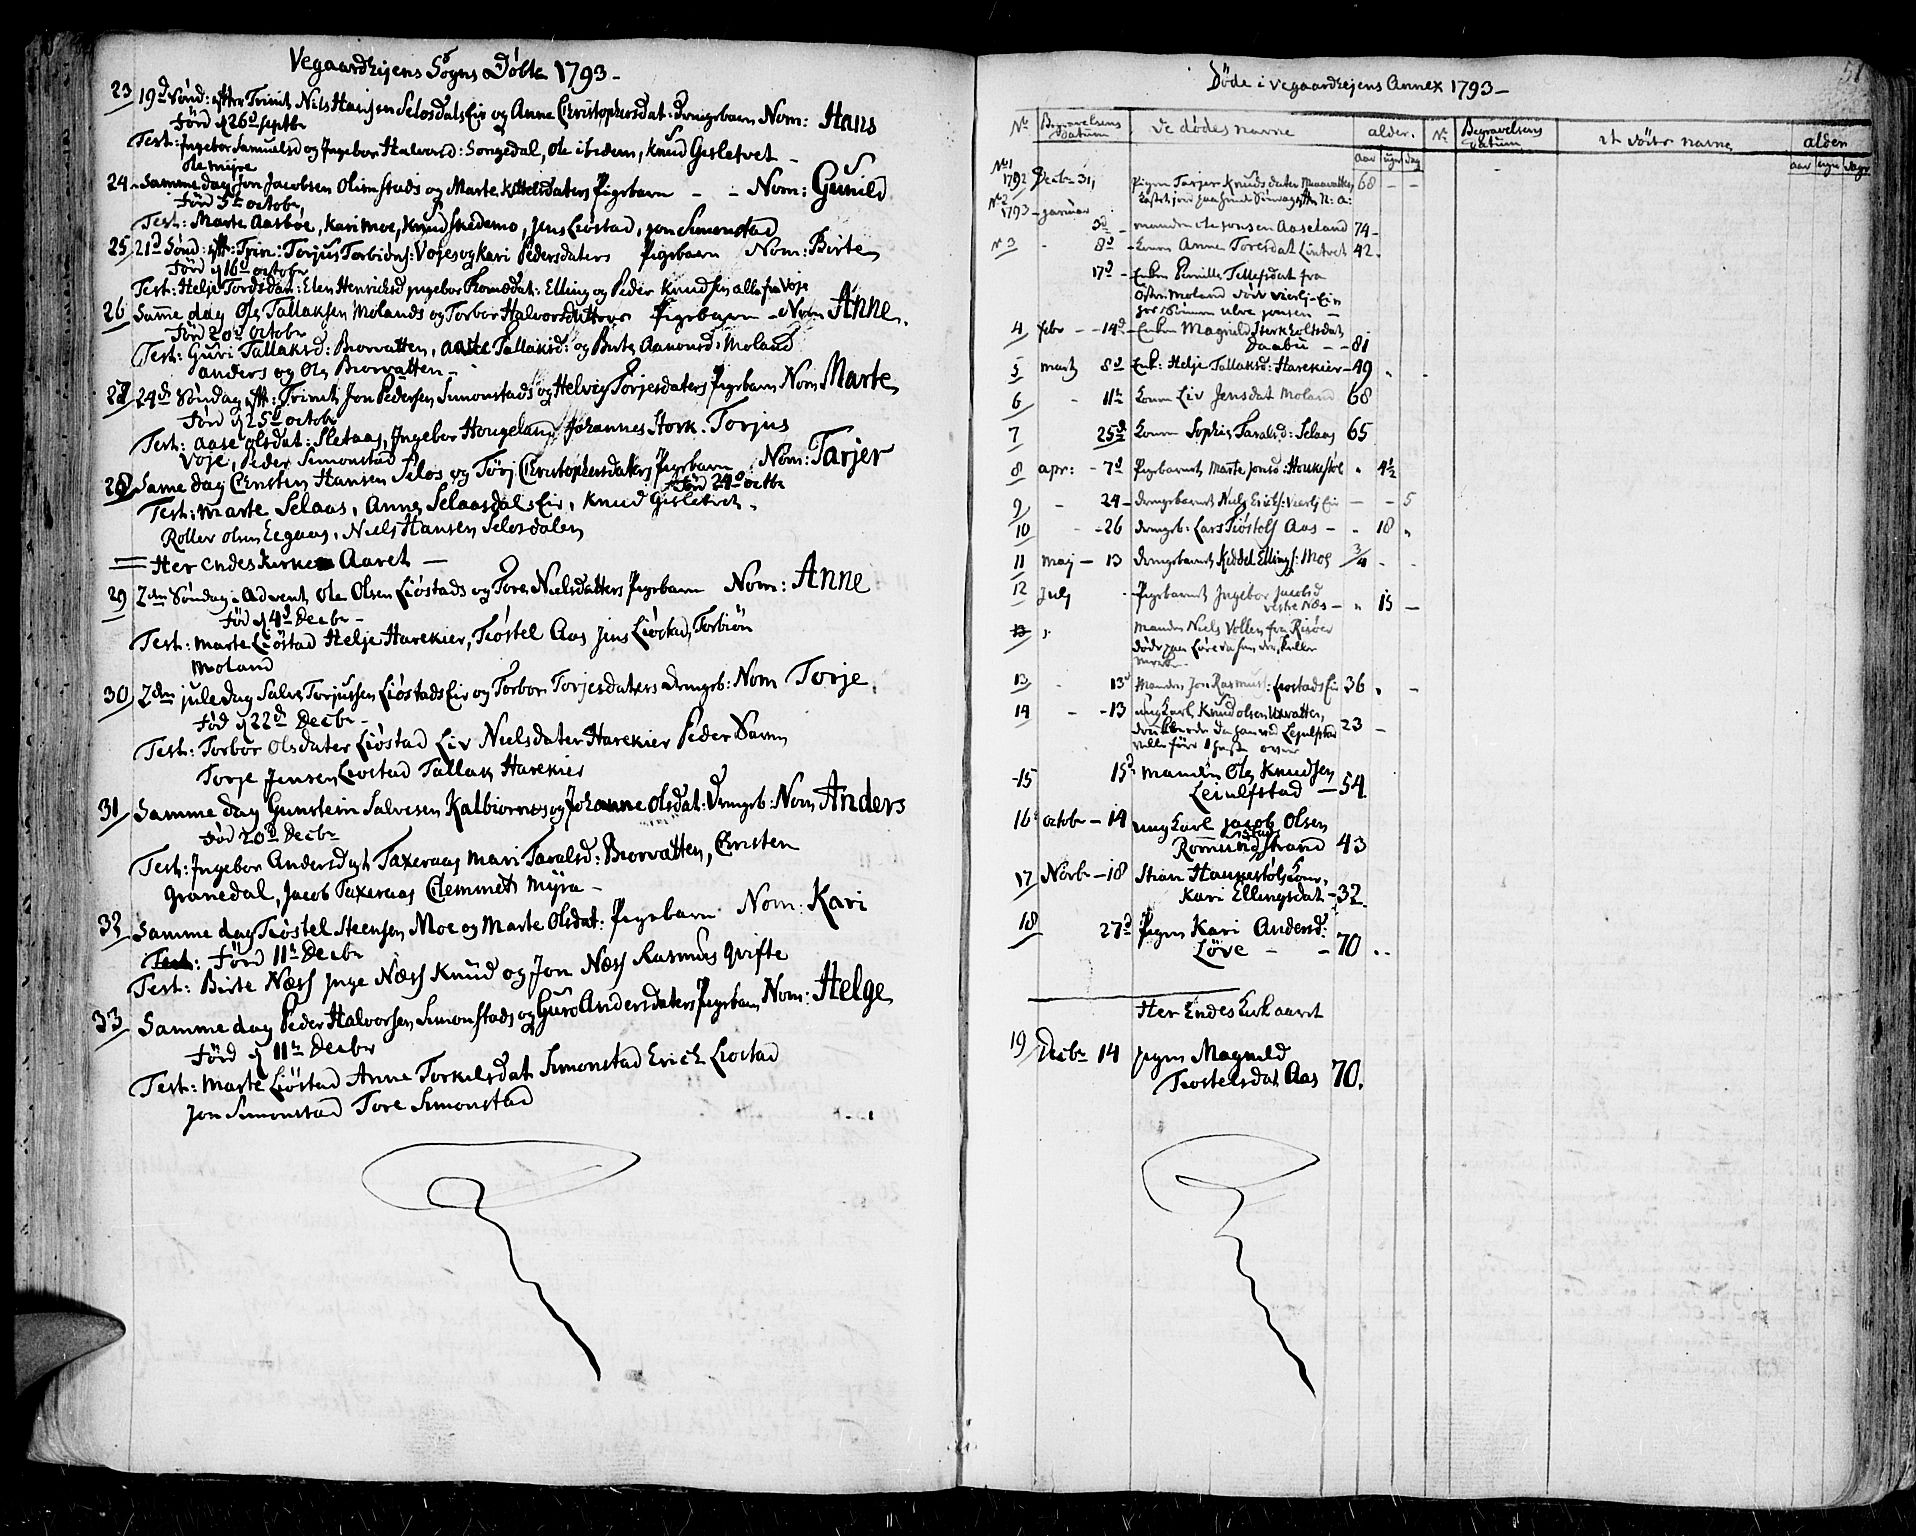 Vegaardhejens Sogns Døbte 1793 -
23 19d Sønd: efter Trinit Niels Hansen Selosdals Eie og Anne Christophersdat: Drengebarn Nom: Hans
Fød d 26d septbr
Test: Ingebor Samuelsd og Ingebor Halvorsd: Songedal, Ole ibidem, Knud Gisletvet -
Ole Myre
24 Samme dag Jon Jacobsen Olimstads og Marte Kittelsdaters Pigebarn - - Nom: Gunild
Fød 5te octobr
Test: Marte Aasbøe, Kari Moe, Knud Skedemo, Jens Liøstad, Jon Simonstad
25 21d Sønd: eft: Trin: Torjus Torbiøns: Vojes og Kari Pedersdaters Pigebarn Nom: Birte
Fød d 16d octobr
Test: Helje Tordsdat: Elen Henricksd Ingebor Thomædat: Elling og Peder Knudsen alle fra Voje
26 Same dag Ole Tallaksen Molands og Torbor Halvorsdatters Pigebarn - Nom Anne.
Fød 20d octobr
Test: Guri Tallaksd: Biorvatten, Aase Tallaksd: og Birte Aanonsd: Moland
Anders og Ole Biorvatten -
27 24de Søndag eft: Trinit Jon Pedersen Simonstads og Helvig Torjesdaters Pigebarn Nom Marte
Fød d 25d octobr
Test: Aase Olsdat: Sletaas, Ingebor Hougeland Johannes Stork. Torjus
Voje, Peder Simonstad
28 Same dag Christen Hansen Selos, og Tørj Christophersdaters Pigebarn Nom: Tarjer
Fød 24d octbr
Test: Marte Selaas, Anne Selaasdals Eie, Knud Gisletvet.
Roller Olsen Eegaas, Niels Hansen Selosdalen
Her endes Kirke Aaret -
29 2den Søndag i Advent Ole Olsen Liøstads og Tore Nielsdatters Pigebarn Nom: Anne
Fød d 4d Decbr -
Test: Marte Liøstad Helje Harekier, Tiøstel Aas Jens Liøstad, Torbiøn
Moland
30 2den juledag Salve Torjussen Liøstads Eie og Torbor Torjesdaters Drengeb: Nom Torje.
Fød d 22d Decbr -
Test: Torbor Olsdater Liøstad Liv Nielsdater Harekier Peder Savn
Torje Jensen Liøstad Tallak Harekier
31 Samme dag Gunstein Salvesen Kalbiornes og Johanne Olsdat: Drengeb: Nom Anders
Fød 20d Decbr
Test: Ingebor Andersdat Taxeraas Mari Taralsd: Biorvatten, Christen
Granedal, Jacob Taxeraas Clemmet Myra -
32 Samme dag Tiøstel Steensen Moe og Marte Olsdat: Pigebarn Nom: Kari
Fød 11te Decbr
Test: Birte Næss Inge Næss Knud og Jon Næss Rasmus Qvifte
33 Samme dag Peder Halvorsen Simonstads og Guro Andersdaters Pigebarn Nom: Helge
Fød d 11te Decbr
Test: Marte Liøstad Anne Torkelsdat Simonstad Erich Liøstad
Jon Simonstad Tore Simonstad
51
Døde i Vegaardhejens Annex 1793 -
No Begravelsens Datum De dødes navne alder. No Begravelsens Datum de dødes navne alder
aar uger dage aar uger dage
No 1 1792 Decbr 31, Pigen Tarjer Knudsdater 68 - -
No 2 1793 - januar
3d - manden Ole Jonsen Aaseland 74 -
No 3 - 8d - Konen Anne Toresdat Lintvet 42.
17d - Enken Pernille Tellefsdat fra
Østre Moland død Vierli-Eie
hos Sønnen Ulve Jonsen -
4 febr - - 14d - Enken Magnild Sterkholtsdat
Daabu - - 81
5 marts 8d Enk: Helje Tallaksd: Harekier - 49
6 - 11te Konen Liv Jensdat Moland 68
7 25d Konen Sophie Taralsd: Selaas 65
8 apr: - 7d Pigebarnet Marte Jonsd: Houkestøl " 4½
9 - 24 - drengebarnet Niels Erichs: Vierli Eie - - 5
10 - 26 drengeb: Lars Tiøstels Aas - " 18 "
11 maj - 13 drengebarnet Kiddel Ellings: Moe 3/4 - -
12 july - Pigebarnet Ingebor Jacobsd
Vestre Næs - " 15 -
13 Manden Niels Vollen fra Risøer
døde paa Løve da han
13 - 13d Manden Jon Rasmus: Liøstads Eie 36 " -
14 - - 13 ung Karl Knud Olsen Uxvatten,
druknede da han ved Lejulfstad 23 -
vilde føre 1 hest over
15 15d Manden Ole Knudsen
Leiulfstad - 54.
16 octobr - 14 ung Karl Jacob Olsen
Romundstad strand 43
17 Novbr - 18 Stian Haukestøls Kone,
Kari Ellingsdat - 32.
18 27d Pigen Kari Andersd:
Løve - - 70 ..
Her Endes Kirk aaret
19 Decbr 14 Pigen Magnild
Tiostelsdat Aas 70.